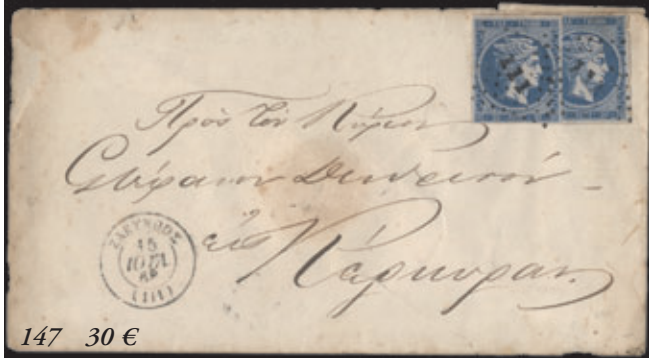 111
Πρὸς τὸν Κύριον
Στέφανον
εἰς Κέρκυραν
ΖΑΚΥΝΘΟΣ
15
ΙΟΥΛ
(111)
147 30 €